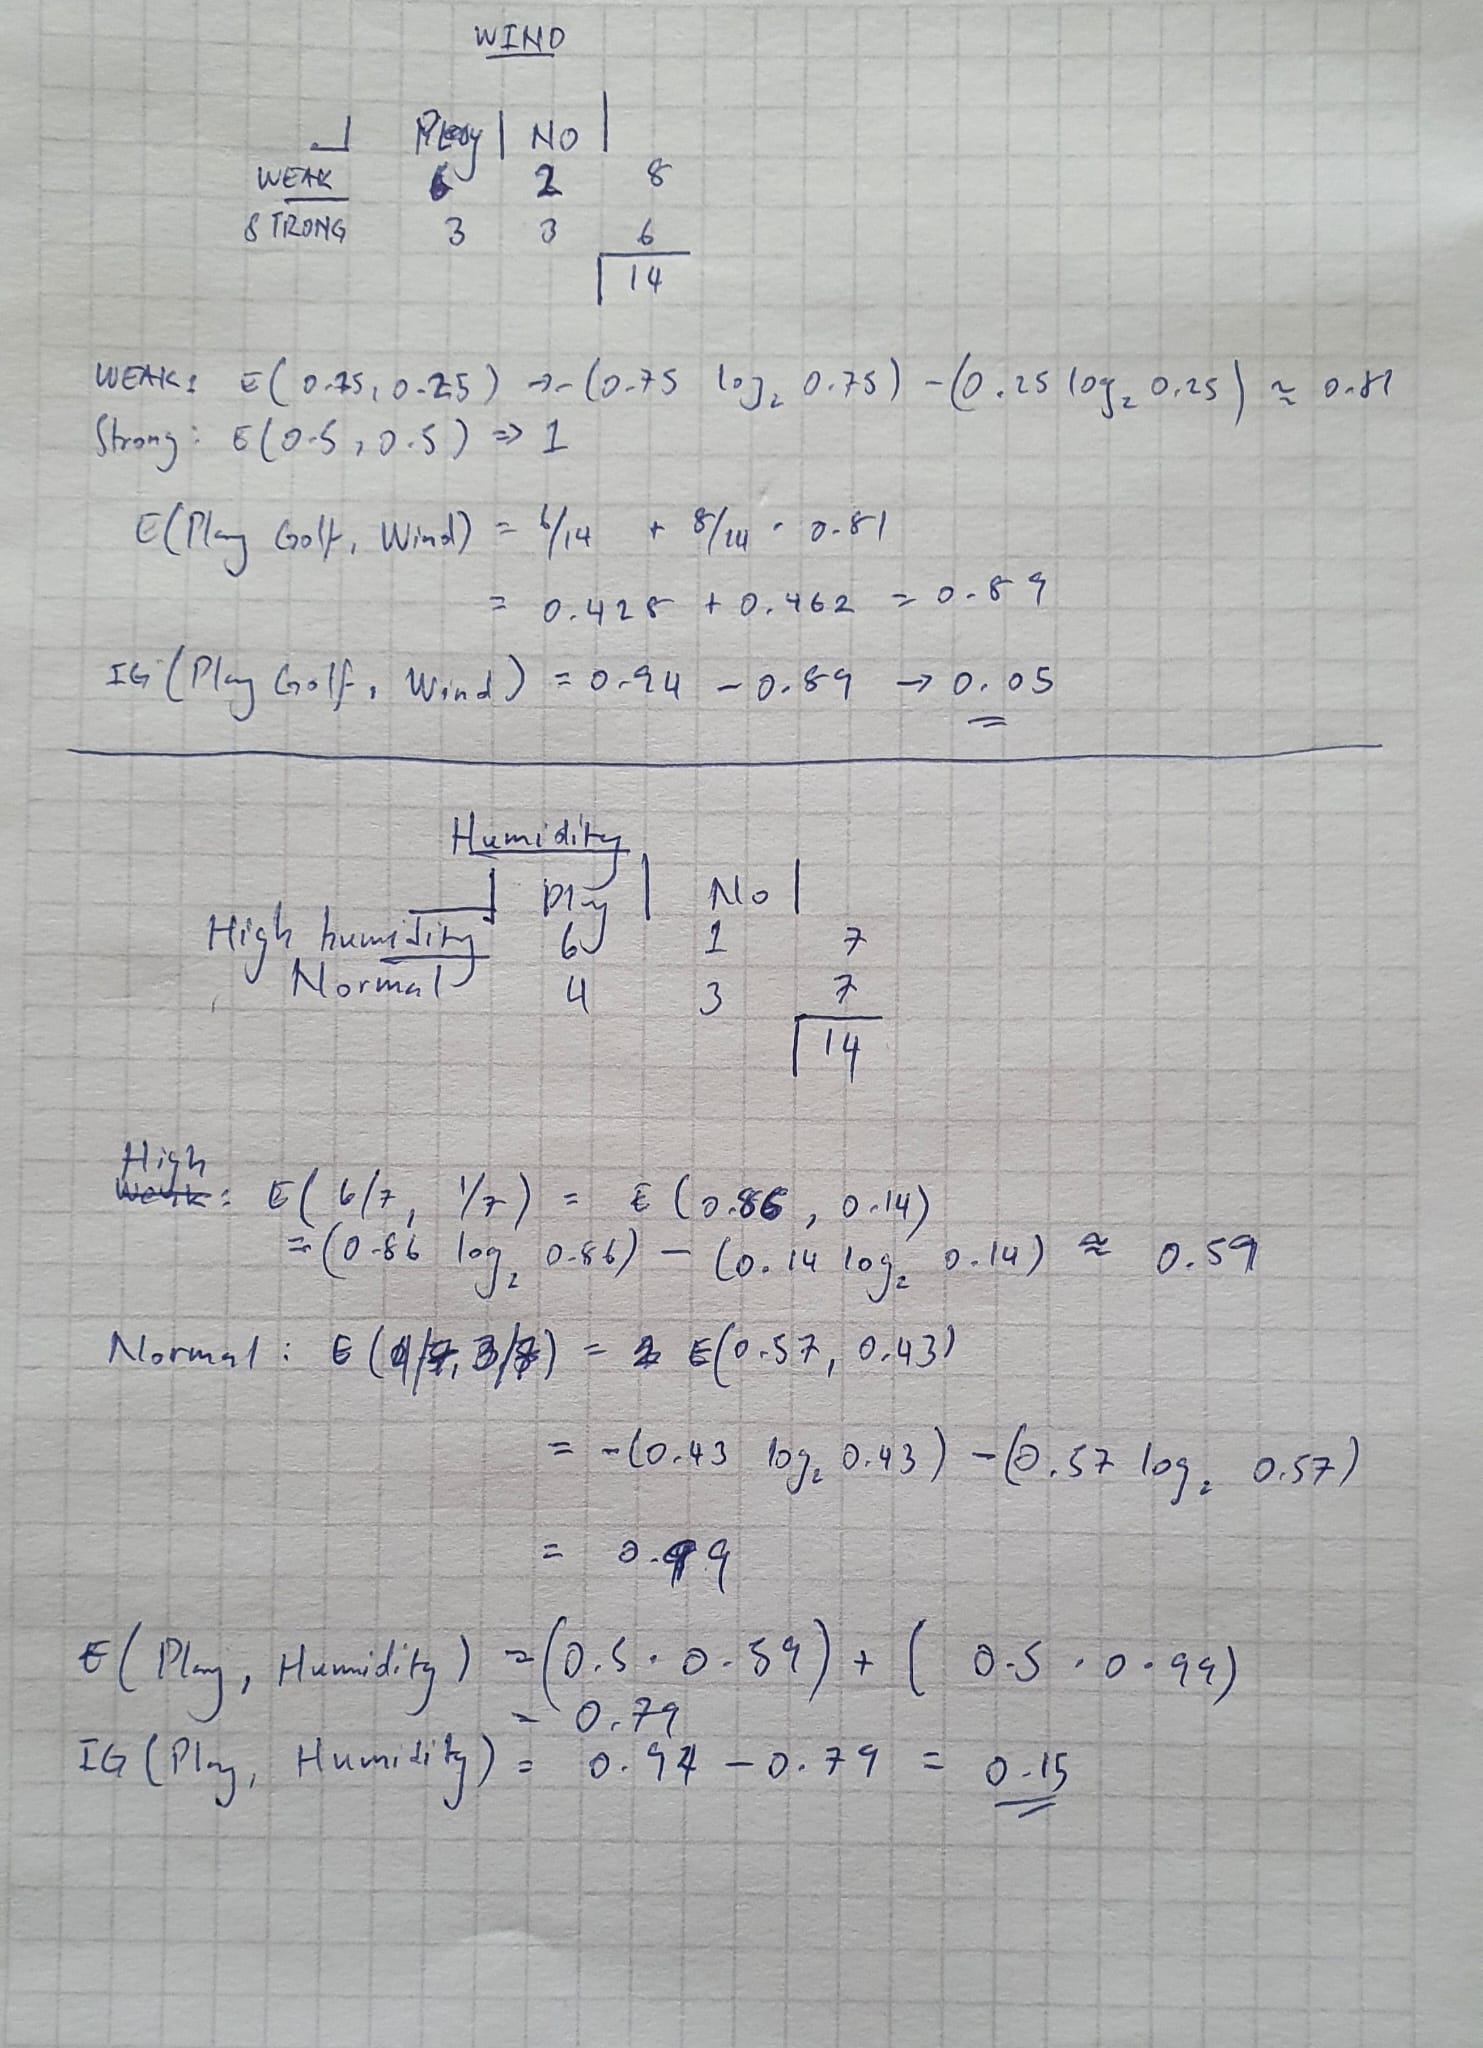 WIND
Play | NO |
WEAK 6 2 8
STRONG 3 3 6
14
WEAK: E(0.75, 0.25) → -(0.75 log₂ 0.75) - (0.25 log₂ 0.25) ≈ 0.81
Strong: E(0.5, 0.5) => 1
E(Play Golf, Wind) = 6/14 + 8/14 · 0.81
= 0.428 + 0.462 = 0.89
IG(Play Golf, Wind) = 0.94 - 0.89 → 0.05
Humidity
Play | No |
High humidity 6 1 7
Normal 4 3 7
14
High
Weak: E(6/7, 1/7) = E(0.86, 0.14)
= -(0.86 log₂ 0.86) - (0.14 log₂ 0.14) ≈ 0.59
Normal: E(4/7, 3/7) = E(0.57, 0.43)
= -(0.43 log₂ 0.43) - (0.57 log₂ 0.57)
= 0.99
E(Play, Humidity) = (0.5 · 0.59) + (0.5 · 0.99)
= 0.79
IG(Play, Humidity) = 0.94 - 0.79 = 0.15